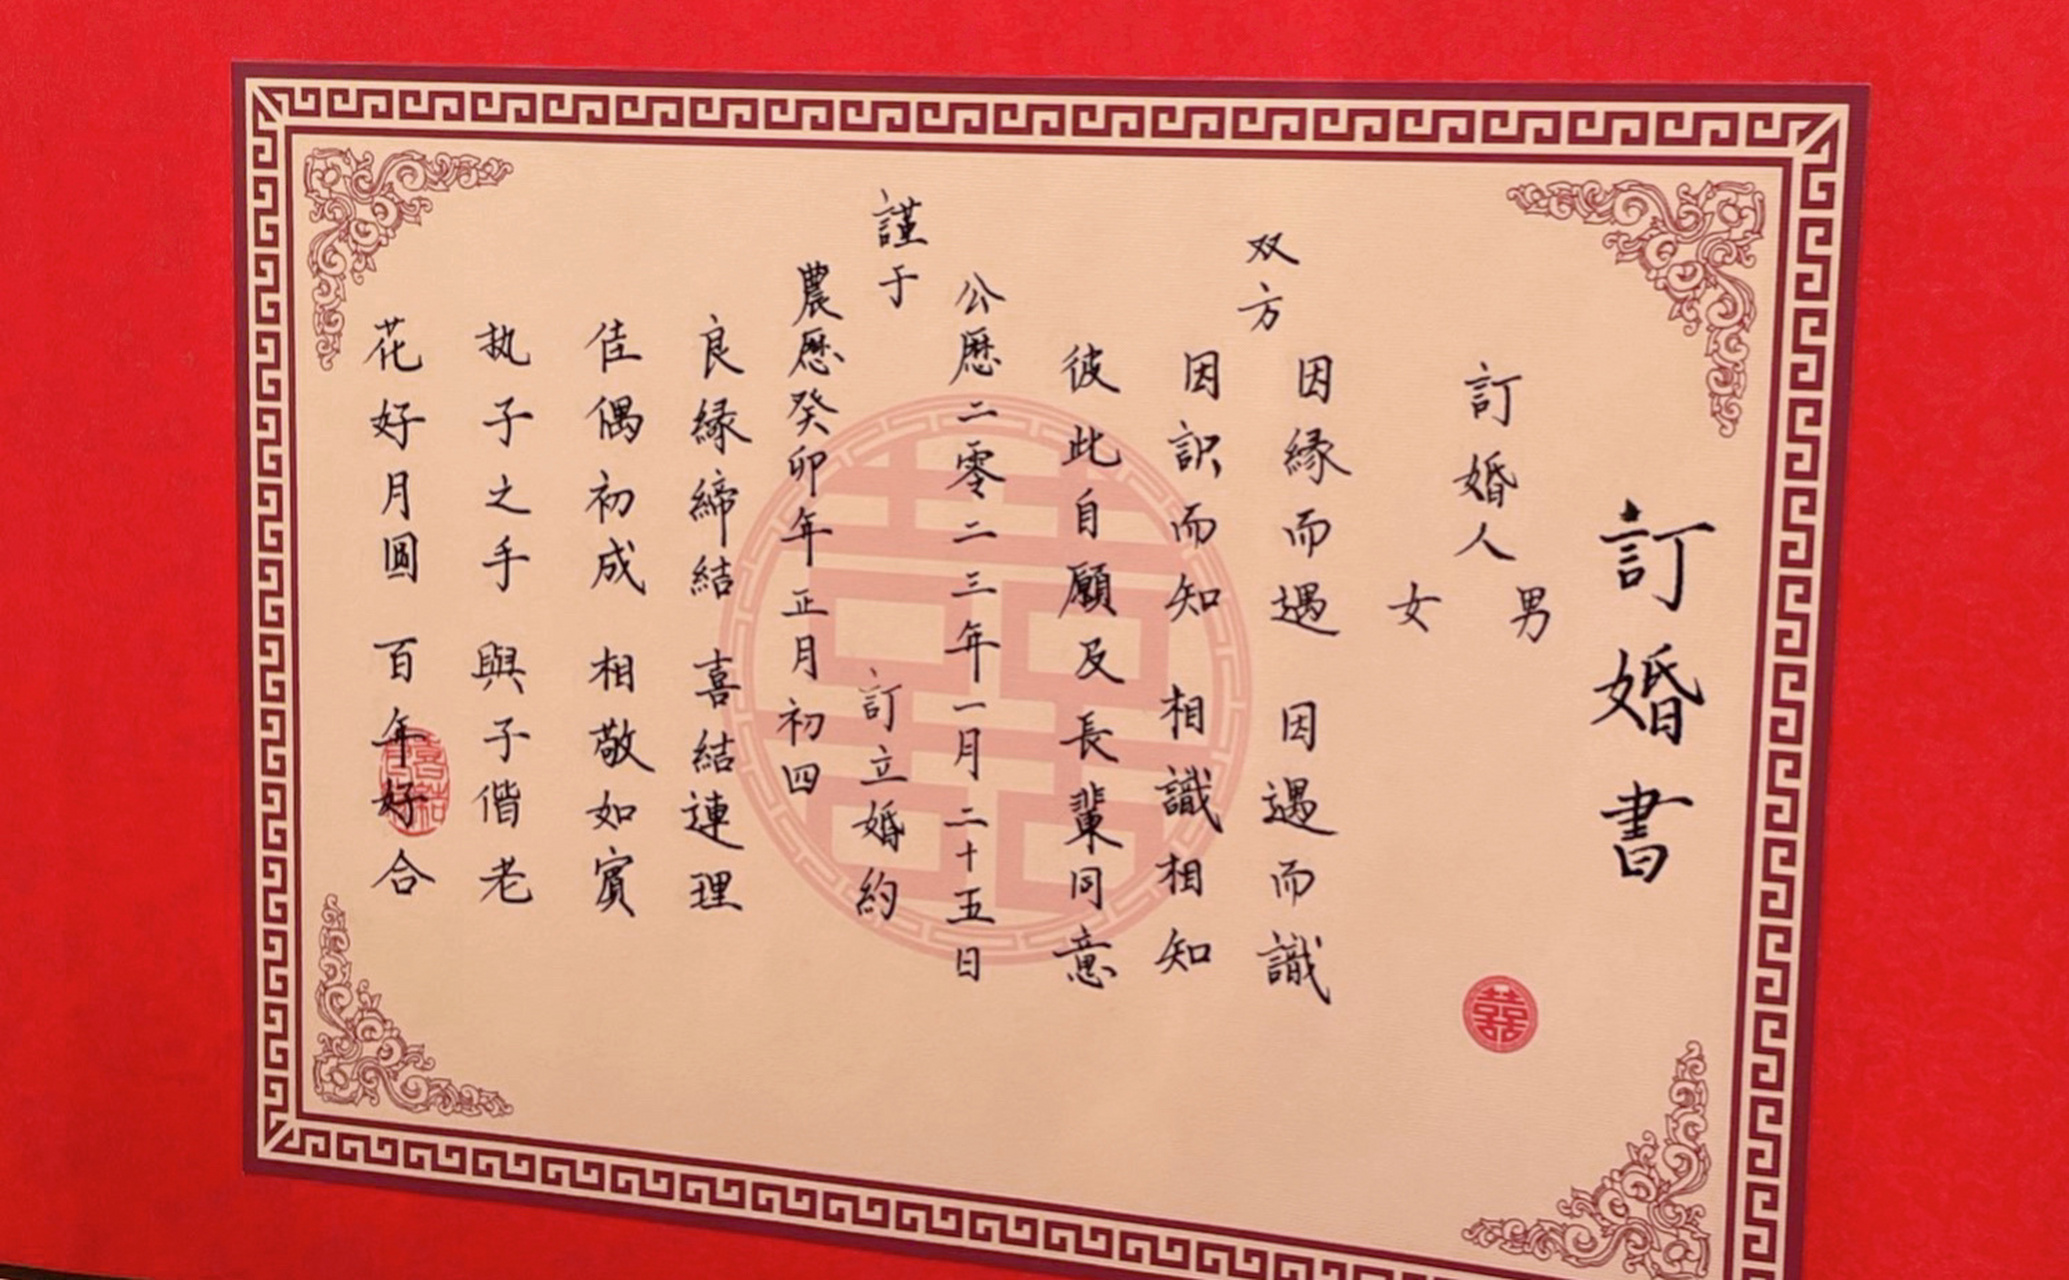 訂婚書
男
訂婚人
女
双方
因緣而遇 因遇而識
因识而知 相識相知
彼此自願及長輩同意
公歷二零二三年一月二十五日
謹于 訂立婚約
農歷癸卯年正月初四
良緣締結 喜結連理
佳偶初成 相敬如賓
执子之手 與子偕老
花好月圓 百年好合
囍